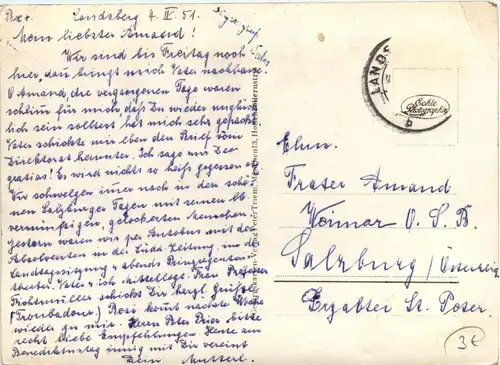 Pax+ Landsberg 4. IV. 51.
Mein liebster Amand!
Wir sind bis Freitag noch
hier, dann bringt mich Vater nachhause.
O Amand, die vergangenen Tage waren
schlimm für mich, daß Du wieder unglück-
lich sein solltest hat mich sehr gepackt.
Vater schickte mir eben den Brief vom
Direktorat herunter. Ich sage nur Deo
gratias! Es wird nichts so heiß gegessen etc.
Wir schwelgen immer noch in den schö-
nen Salzburger Tagen mit seinen
vernünftigen, gelockerten Menschen.
Gestern waren wir per Autobus mit den
Absolventen in der Südd. Zeitung, in der
Landtagssitzung & abends Prinzregenten-
theater. Vater & ich mittellogs. Frau Professor
Frohtsmüller schickt Dir herzl. Grüße
(Troubadour.) Rosi kommt nächste Woche
wieder zu mir. Herrn Pater Prior bitte
recht liebe Empfehlungen. Heute am
Benediktustag innig mit Dir vereint
Dein Mutterl.
LANDS
b
Echte
Photographie
Ehrw.
Frater Amand
Weimar O. S. B.
Salzburg/Österreich
Erzabtei St. Peter
3€